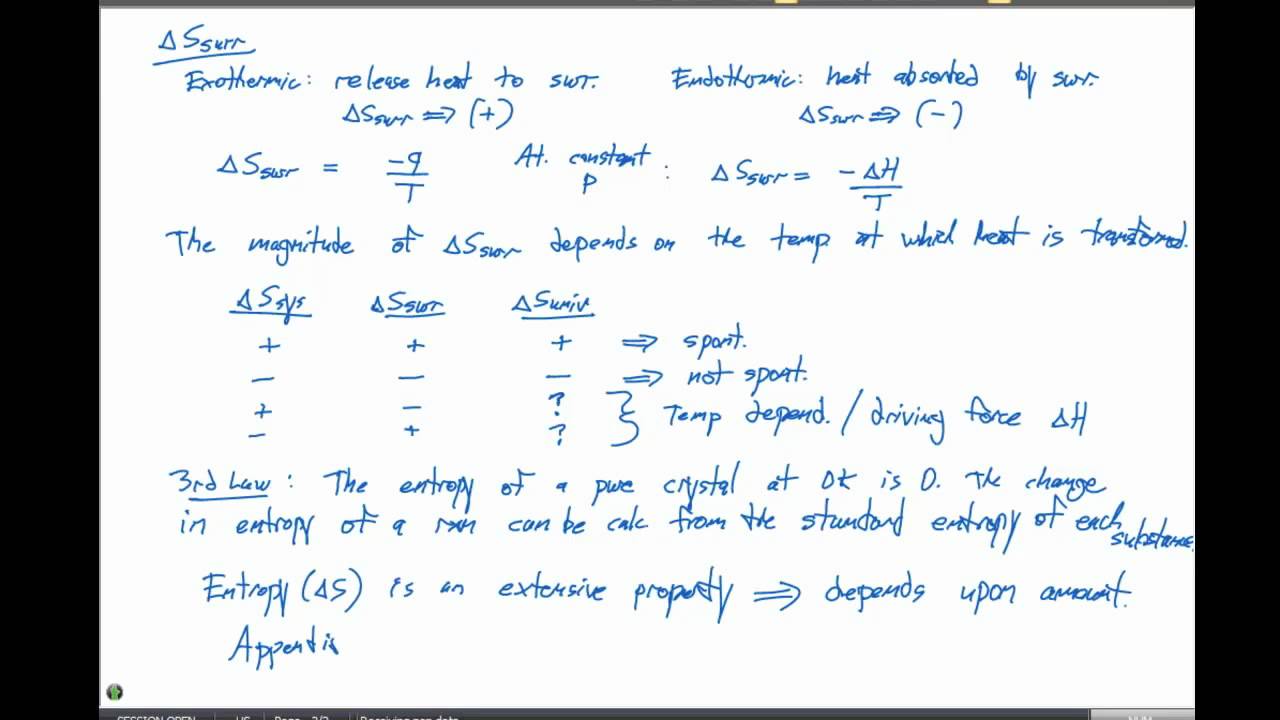 ΔSsurr
Exothermic: release heat to surr. Endothermic: heat absorbed by surr.
ΔSsurr ⇒ (+) ΔSsurr ⇒ (-)
ΔSsurr = -q/T At constant P : ΔSsurr = -ΔH/T
The magnitude of ΔSsurr depends on the temp at which heat is transferred.
ΔSsys ΔSsurr ΔSuniv
+ + + ⇒ spont.
- - - ⇒ not spont.
+ - ?
- + ? } Temp depend. / driving force ΔH
3rd Law: The entropy of a pure crystal at 0K is 0. The change
in entropy of a rxn can be calc from the standard entropy of each substance.
Entropy (ΔS) is an extensive property ⇒ depends upon amount.
Appendi
SESSION OPEN US Page 2/2 Receiving pen data NUM